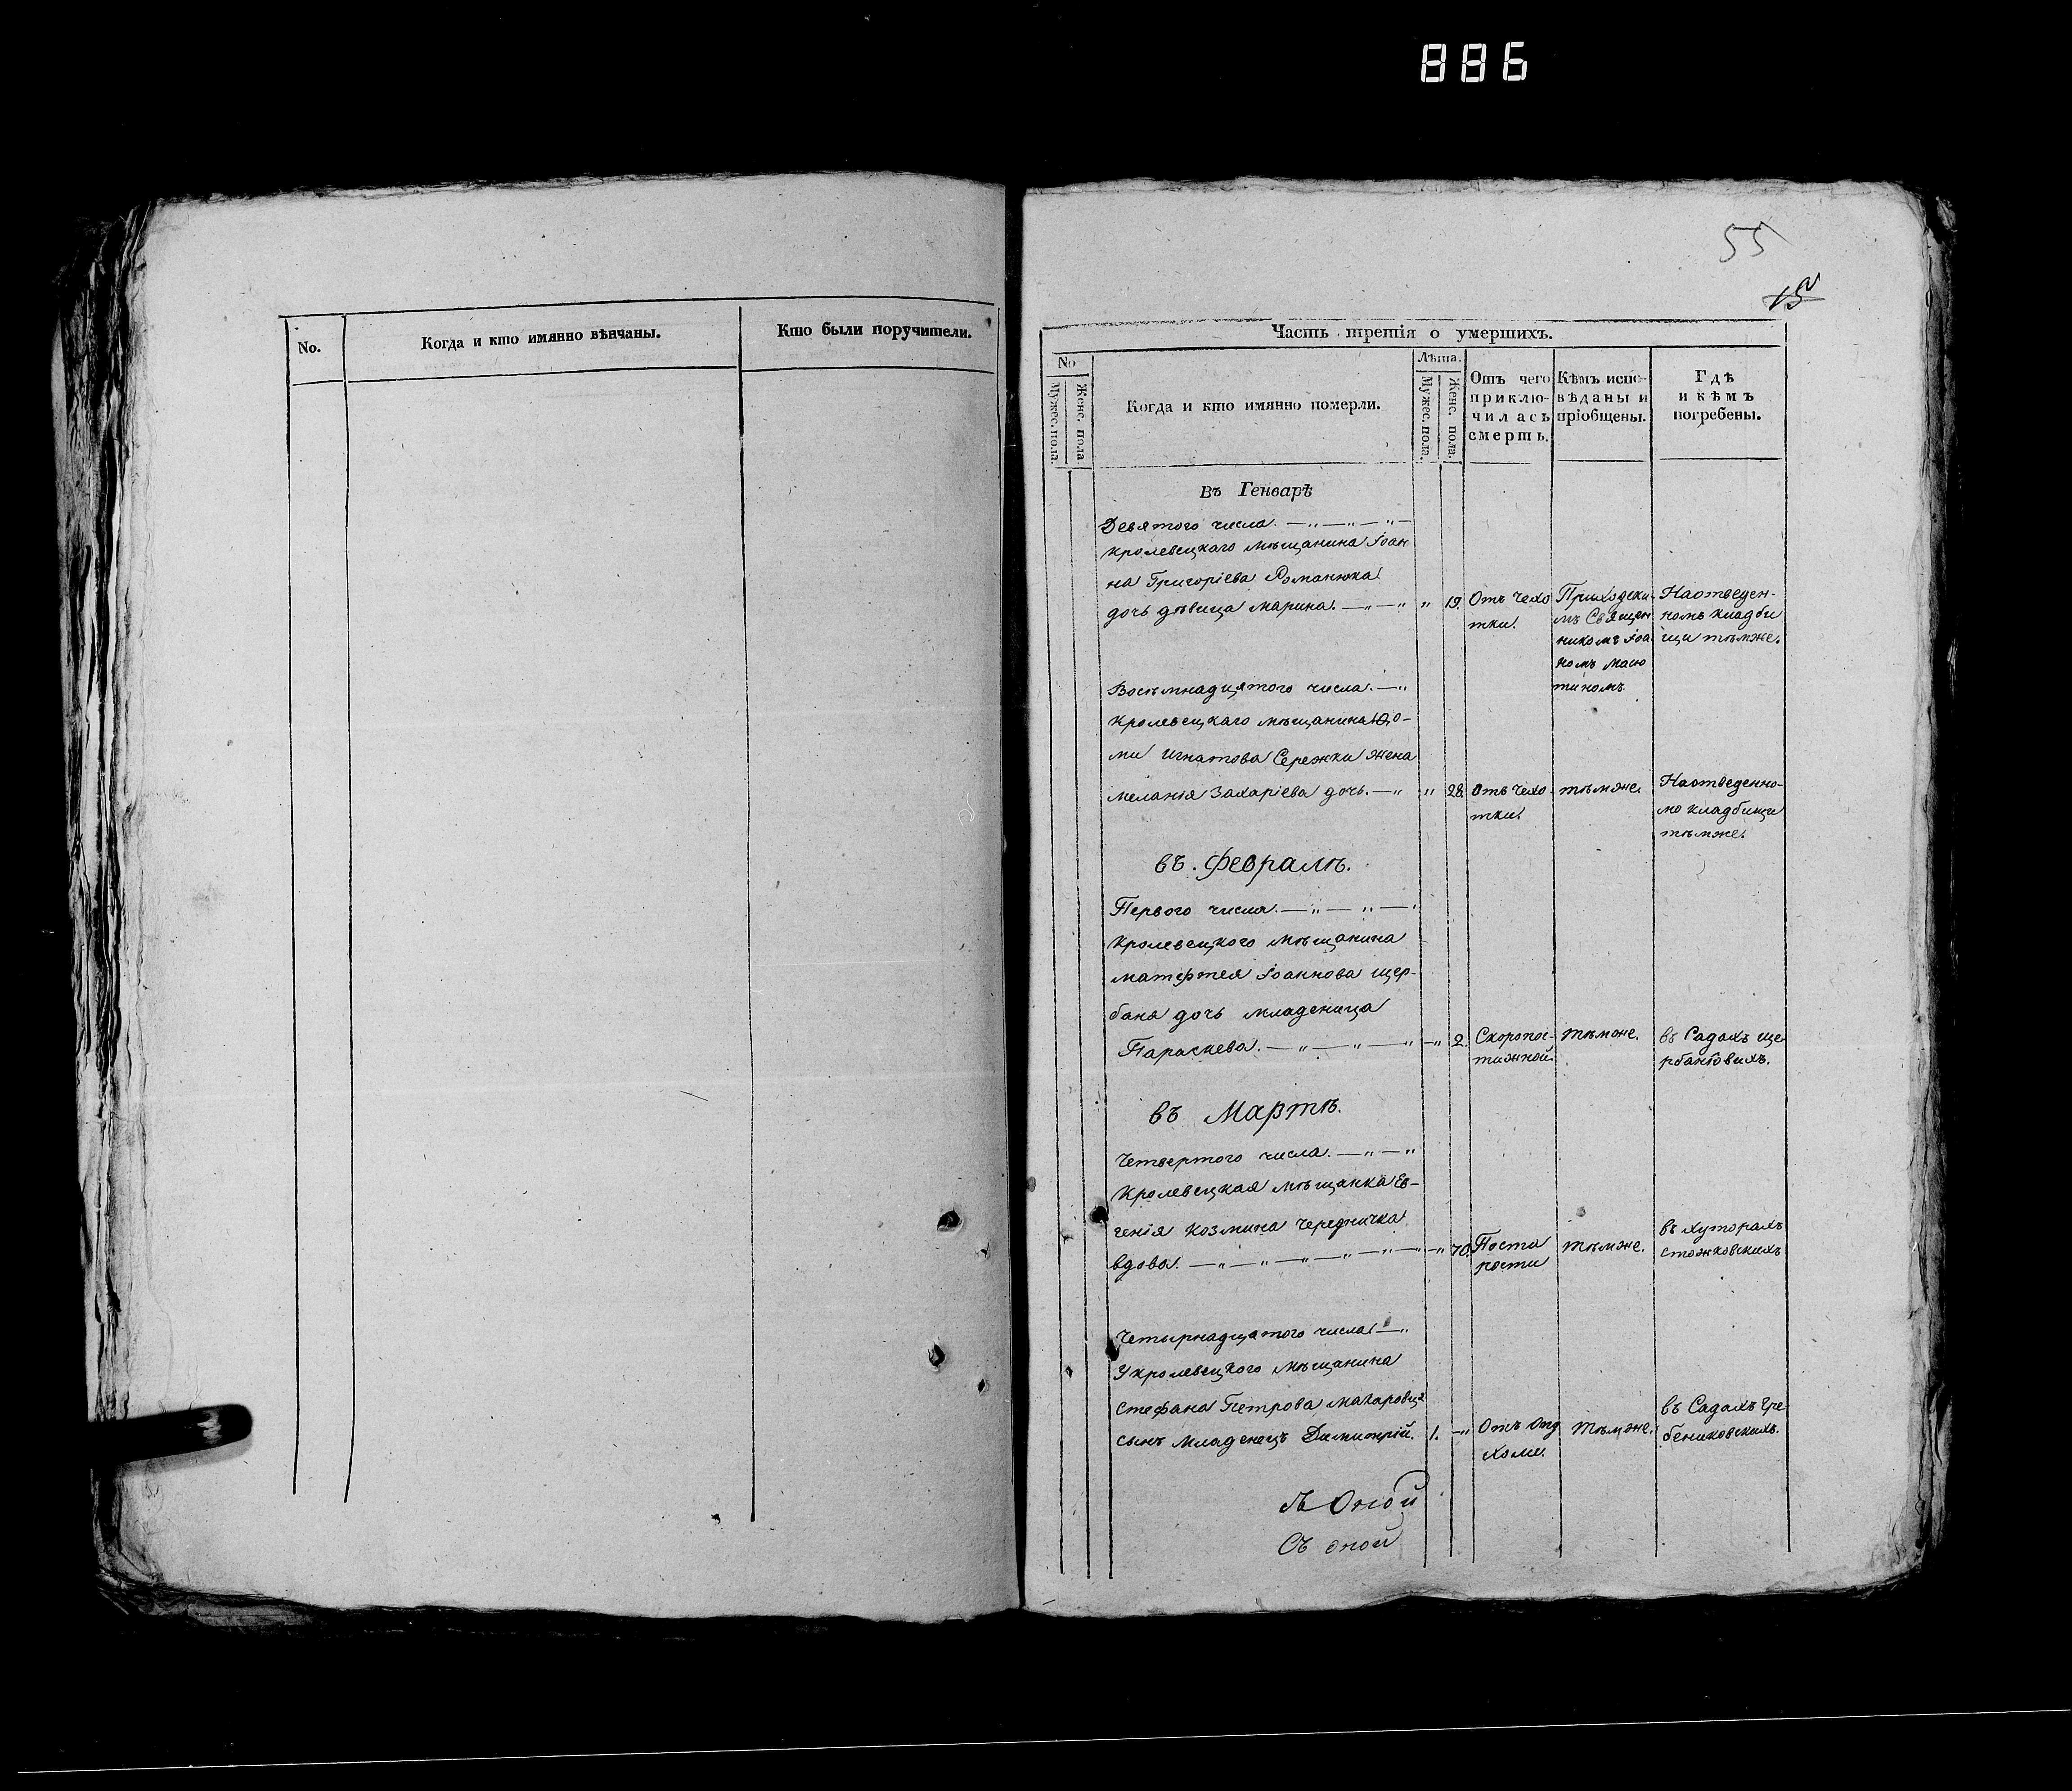 886
No.
Когда и кто имянно вѣнчаны.
Кто были поручители.
55
15
Часть третія о умершихъ.
No
Мужес. пола.
Женс. пола
Когда и кто имянно померли.
Лѣта.
Мужес. пола.
Женс. пола.
Отъ чего
приклю-
чилась
смерть.
Кѣмъ испо-
вѣданы и
пріобщены.
Гдѣ
и кѣмъ
погребены.
Въ Генварѣ
Девятого числа. — „ — „ — „ —
кролевецкаго мѣщанина Іоан
на Григоріева Романюка
дочь дѣвица Марина. — „ — „ „ 19. Отъ чехо Приходски- Наотведен-
тки. мъ Священ номъ кладби
никомъ Іоа щи тѣмже.
номъ Масю
тиномъ
Восѣмнадцятого числа. — „
Кролевецкаго мѣщанина Ѳо-
ми Игнатова Сережки жена
Меланія Захаріева дочь. — „ „ 28. Отъ чехо- тѣмже. Наотведенно-
тки. мо кладбищи
тѣмже.
въ Февралѣ.
Первого числа. — „ — „ —
Кролевецкого мѣщанина
Матфтея Іоаннова Щер-
бана дочь младеница
Параскева. — „ — „ — „ — „ 2. Скоропос- тѣмже. въ Садахъ Ще
тижной. рбановихъ.
въ Мартѣ.
Четвертого числа. — „ — „
Кролевецкая мѣщанка Ев-
генія Козмина Чередничка
вдова. — „ — „ — „ — „ — „ — „ 70. Поста тѣмже. въ хуторахъ
рости стожковскихъ
Четырнадцатого числа — „
У кролевецкого мѣщанина
Стефана Петрова Макаровца
сынъ младенецъ Димитрій. 1. — „ Отъ Отд тѣмже. въ Садахъ Гре
хоми. бениковскихъ.
Съ оной